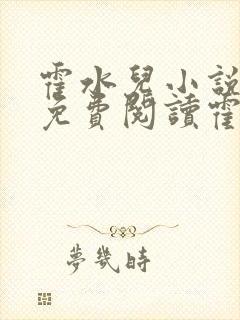 霍水兒小說
免費閱讀霍
夢幾時